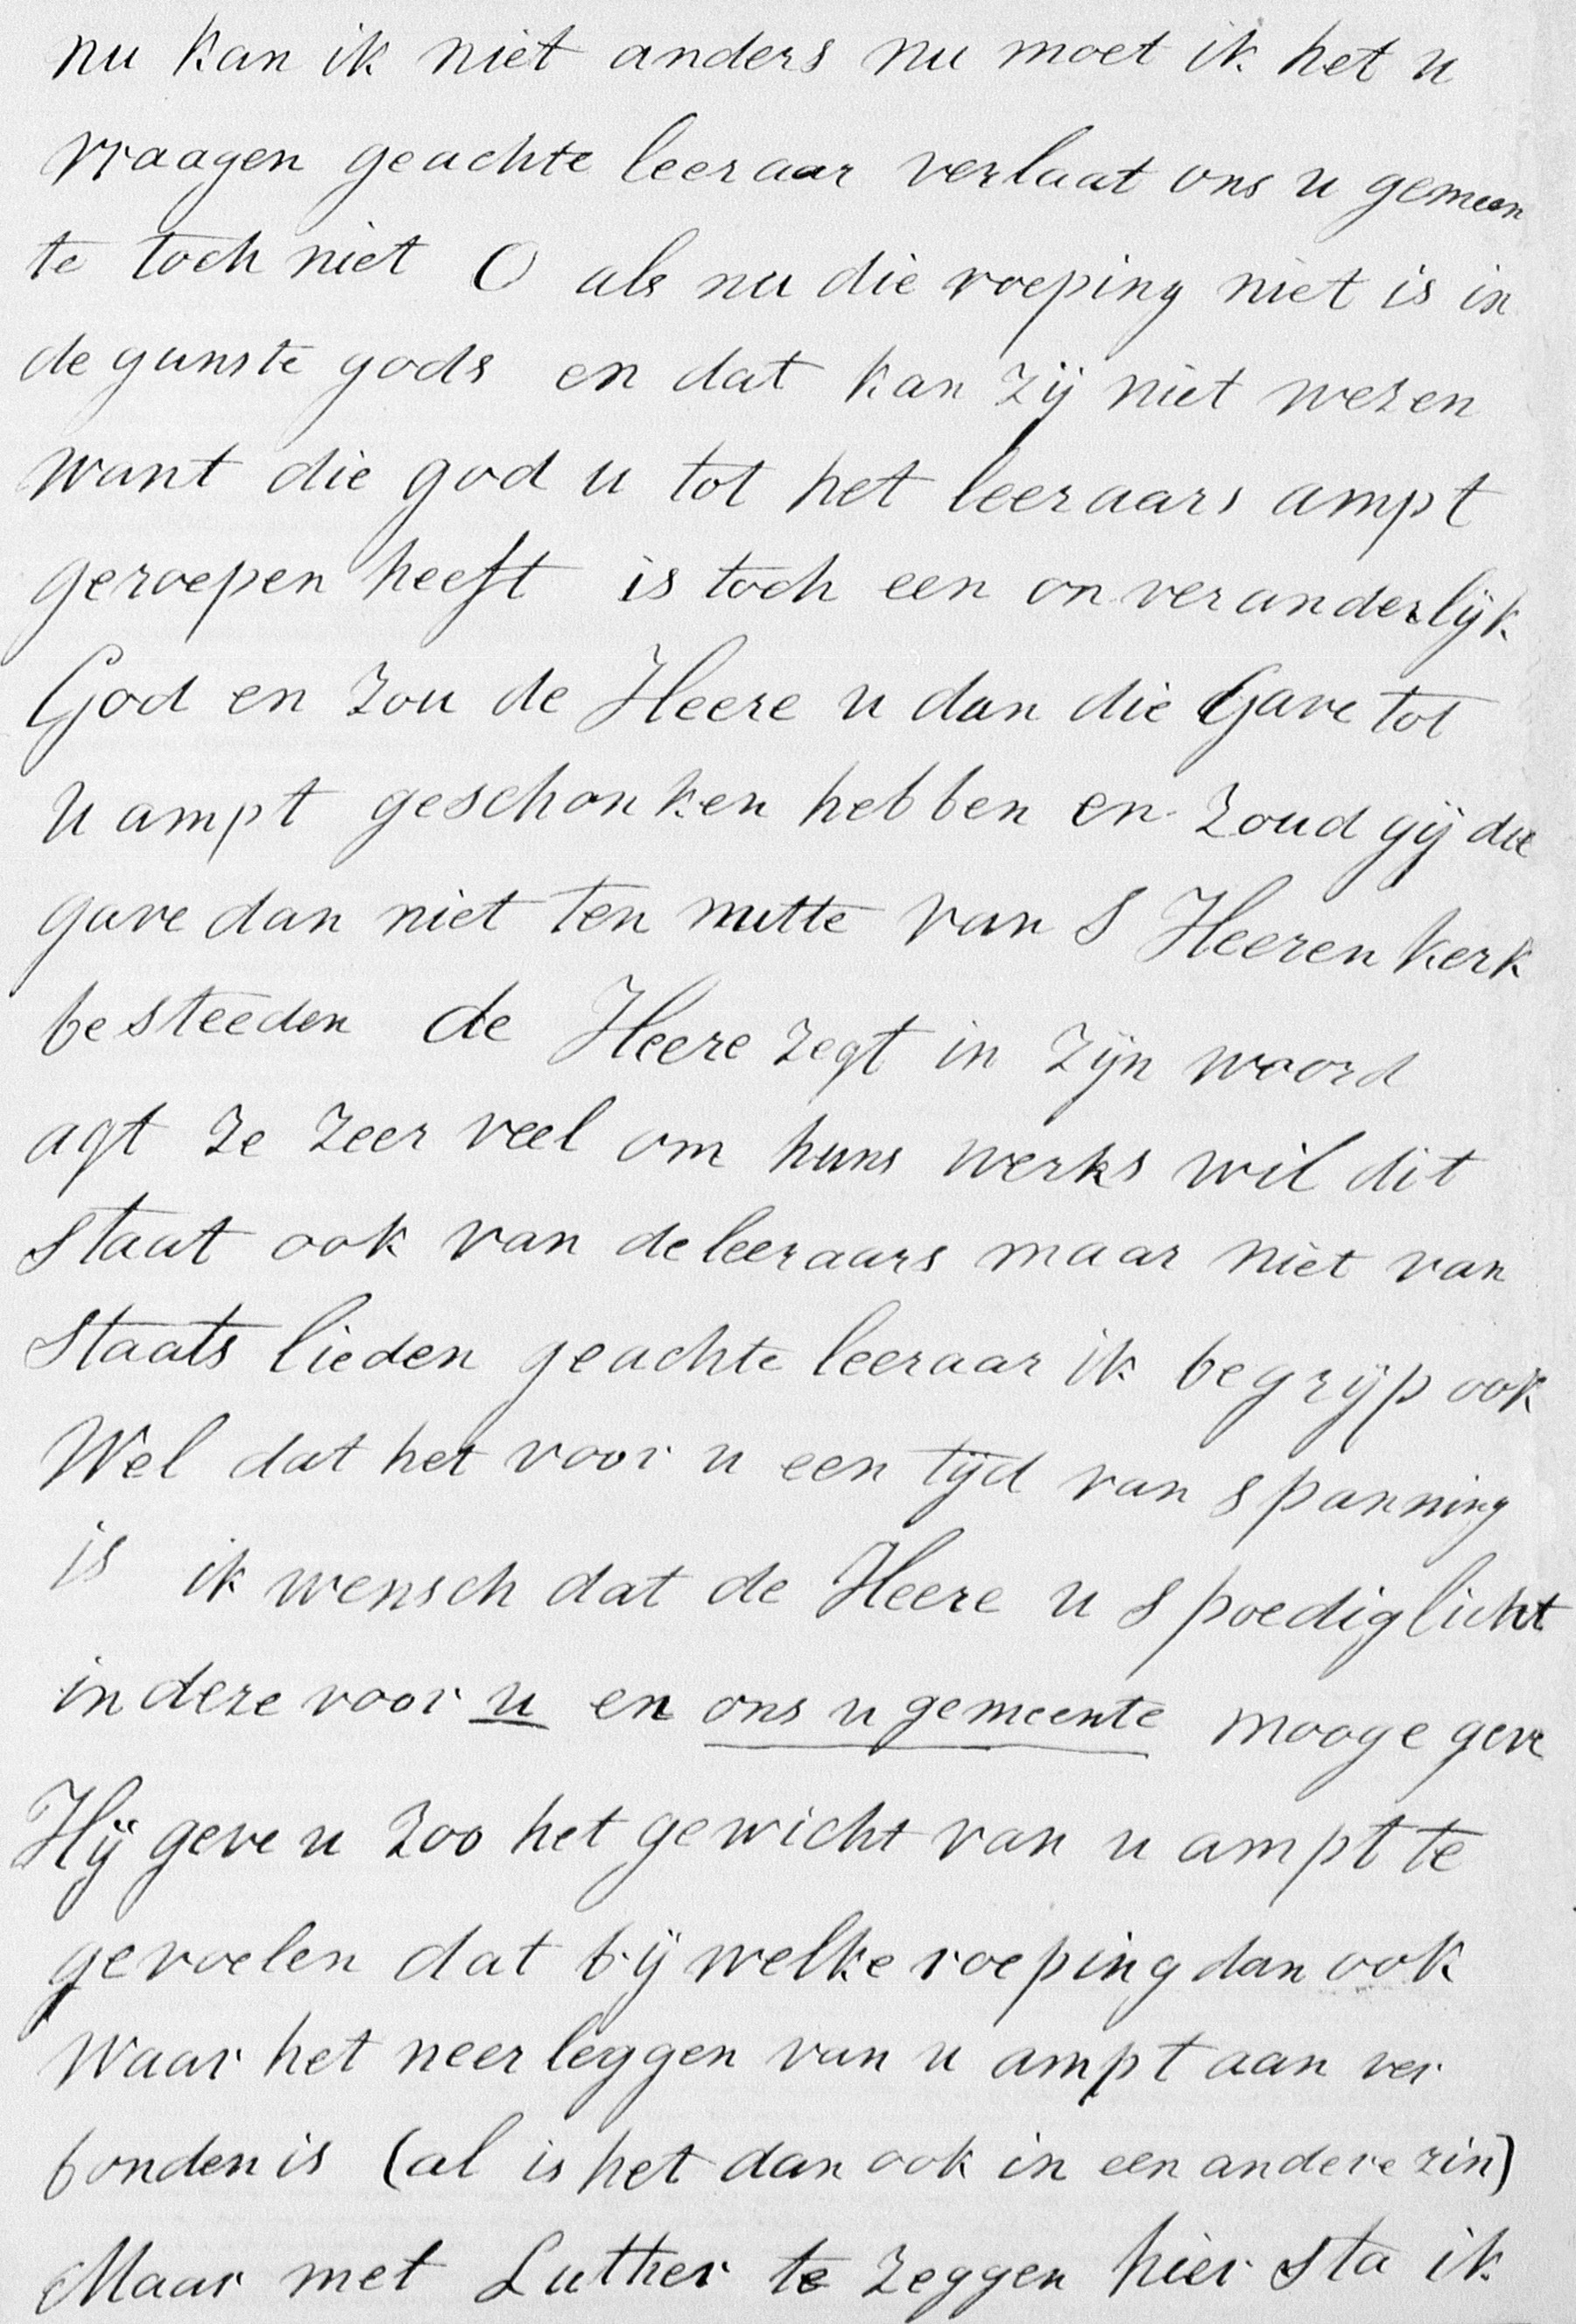 nu kan ik niet anders nu moet ik het u
vraagen geachte leeraar verlaat ons u gemeen
te toch niet O als nu die roeping niet is in
de gunste gods en dat kan zij niet wezen
want die god u tot het leeraars ampt
geroepen heeft is toch een onveranderlijk
God en zou de Heere u dan die Gave tot
u ampt geschonken hebben en zoud gij die
gave dan niet ten nutte van S Heeren kerk
besteeden de Heere zegt in zijn woord
agt ze zeer veel om huns werks wil dit
staat ook van de leeraars maar niet van
staats lieden geachte leeraar ik begrijp ook
Wel dat het voor u een tijd van spanning
is ik wensch dat de Heere u spoedig licht
in deze voor u en ons u gemeente mooge geve
Hij geve u zoo het gewicht van u ampt te
gevoelen dat bij welke roeping dan ook
Waar het neerleggen van u ampt aan ver
bonden is (al is het dan ook in een andere zin)
Maar met Luther te zeggen hier sta ik